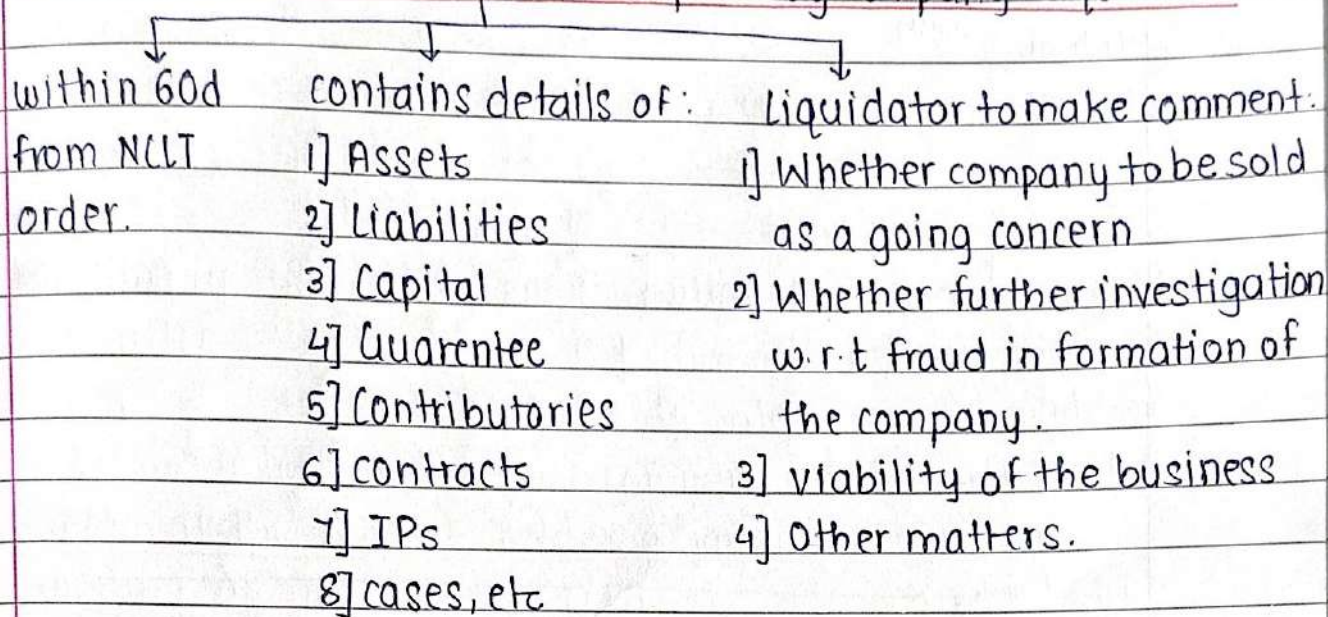 within 60d
from NCLT
order.
contains details of:
1] Assets
2] Liabilities
3] Capital
4] Guarentee
5] Contributories
6] contracts
7] IPs
8] cases, etc
Liquidator to make comment:
1] Whether company to be sold
as a going concern
2] Whether further investigation
w.r.t fraud in formation of
the company.
3] viability of the business
4] Other matters.